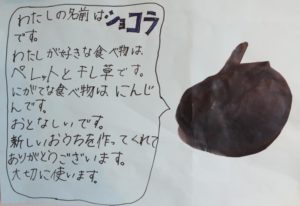 わたしの名前はショコラ
です。
わたしが好きな食べ物は
ペレットと干し草です。
にがてな食べ物は にんじ
んです。
おとなしいです。
新しいおうちを作ってくれて
ありがとうございます。
大切に使います。